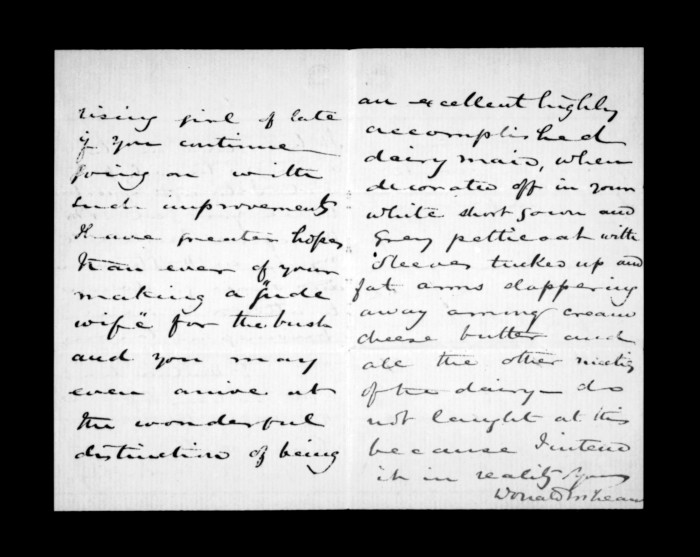 rising girl of late
if you continue
going on with
such improvements
I have greater hopes
than ever of your
making a "gude
wife" for the bush
and you may
even arrive at
the wonderful
distinction of being
an excellent highly
accomplished
dairy maid, when
decorated off in your
white short gown and
Grey petticoat with
Sleeves tucked up and
fat arms slappering
away among cream
cheese butter and
all the other
of the dairy - do
not laugh at this
because I intend
it in reality Yours
Donald McLean